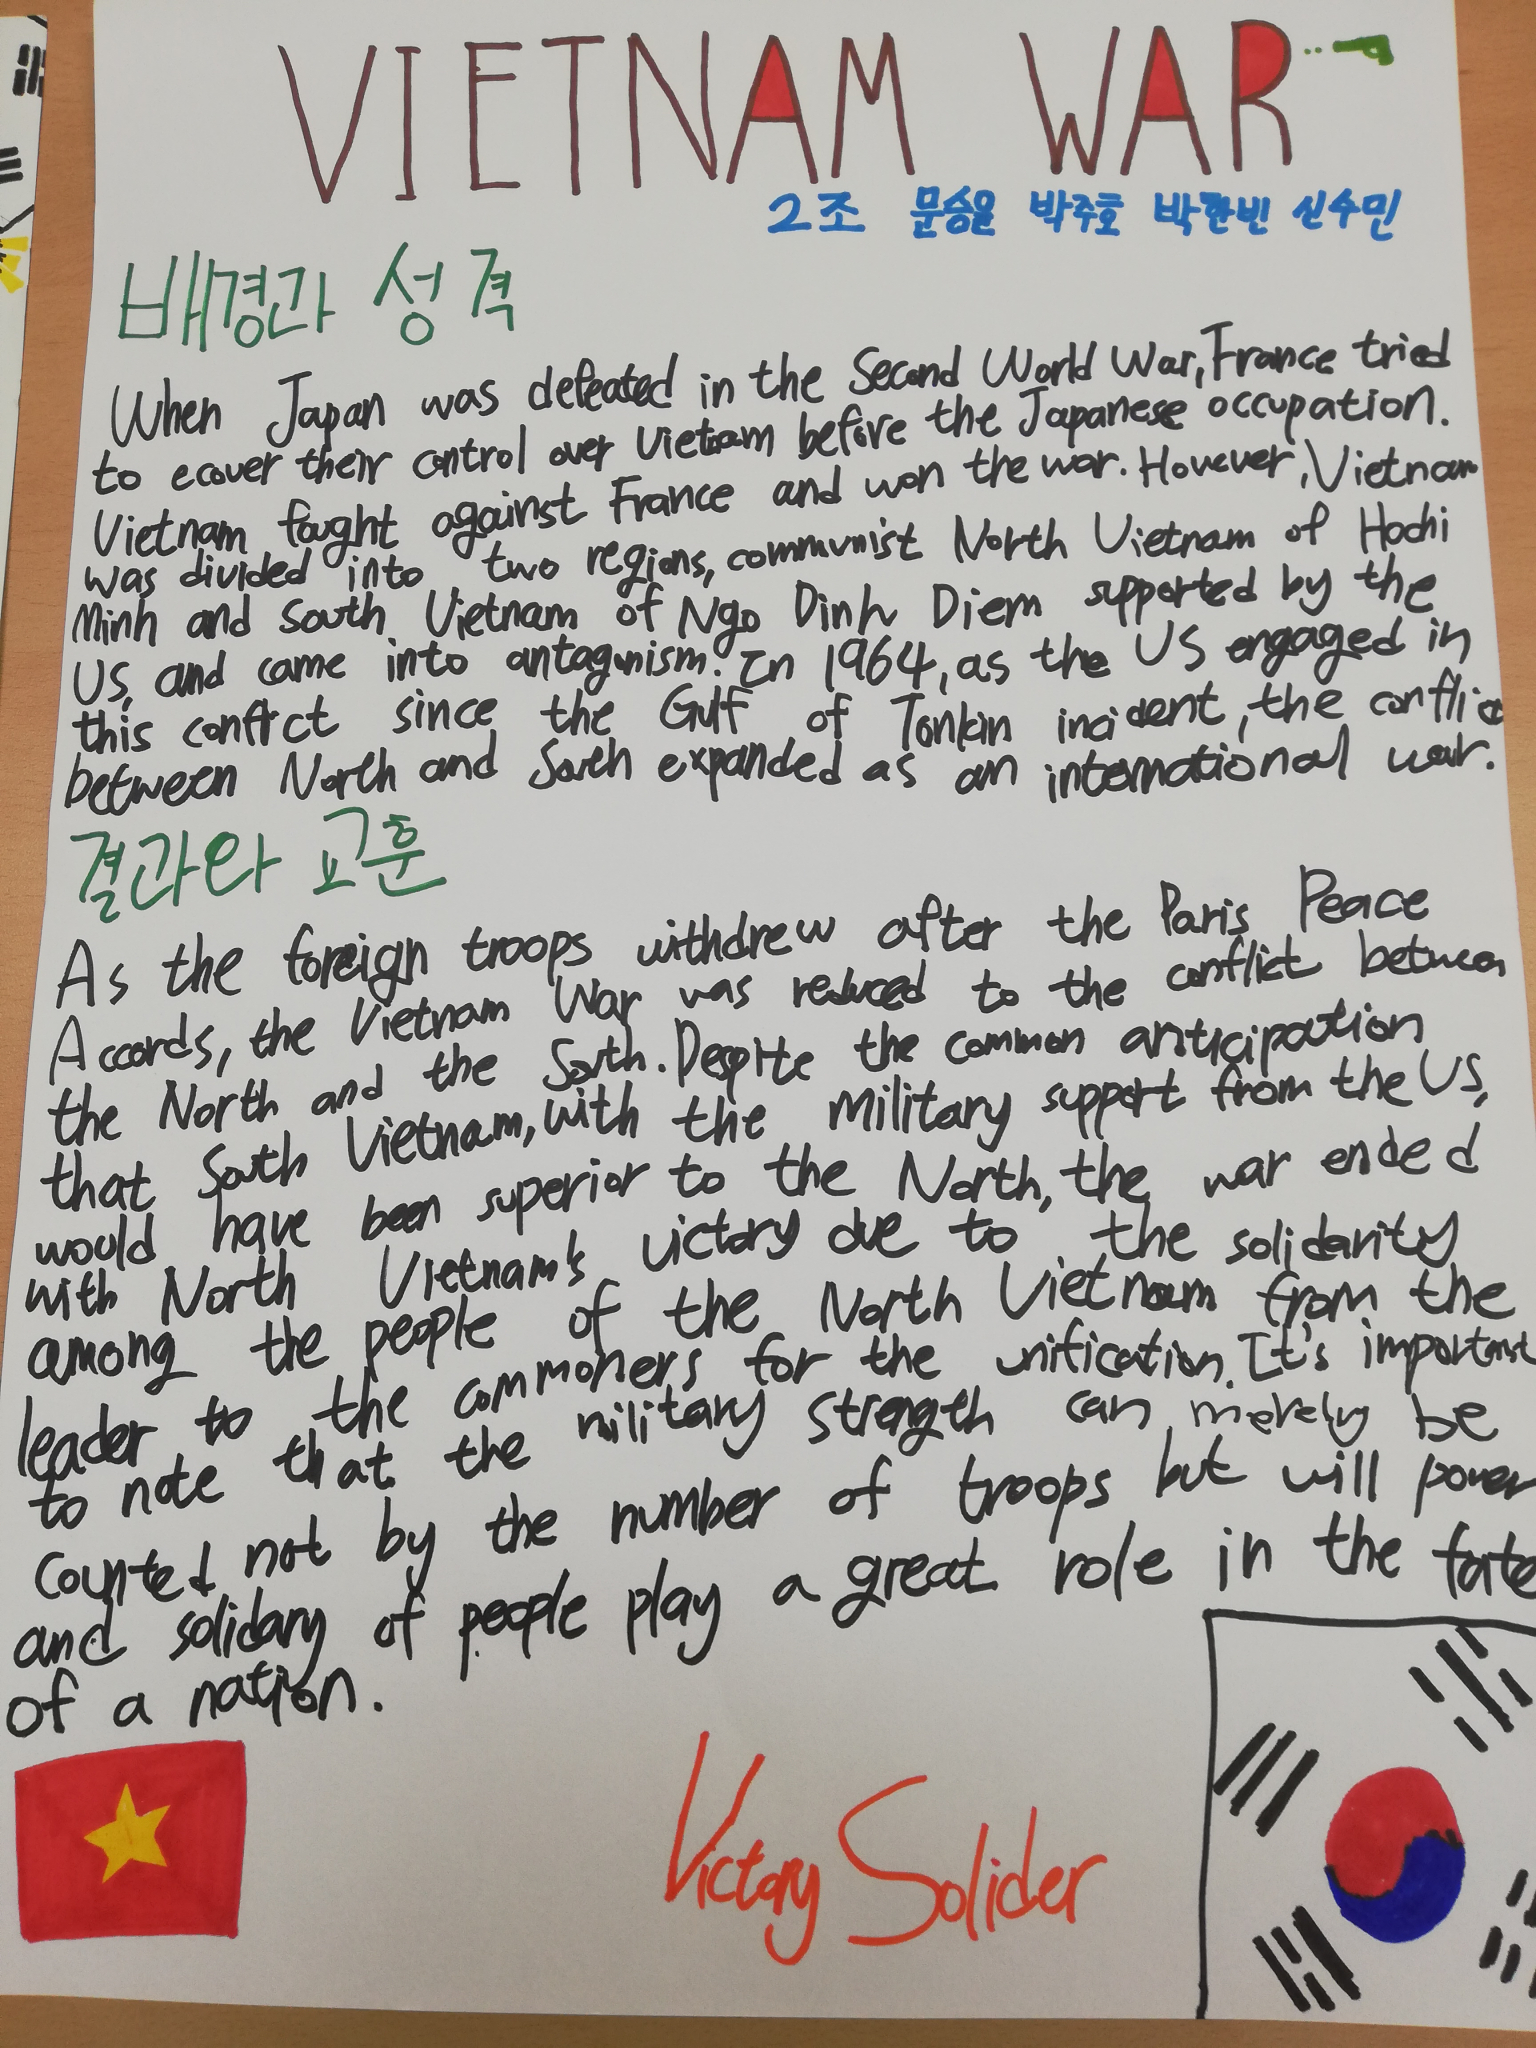 VIETNAM WAR
2조 문승윤 박주호 박한빈 신수민
배경과 성격
When Japan was defeated in the Second World War, France tried
to ecover their control over Vietnam before the Japanese occupation.
Vietnam fought against France and won the war. However, Vietnam
was divided into two regions, communist North Vietnam of Hochi
Minh and South Vietnam of Ngo Dinh Diem supported by the
US, and came into antagonism. In 1964, as the US engaged in
this conflict since the Gulf of Tonkin incident, the conflic
between North and South expanded as an international war.
결과와 교훈
As the foreign troops withdrew after the Paris Peace
Accords, the Vietnam War was reduced to the conflict between
the North and the South. Despite the common anticipation
that South Vietnam, with the military support from the US,
would have been superior to the North, the war ended
with North Vietnam's victory due to the solidarity
among the people of the North Vietnam from the
leader to the commoners for the unification. It's important
to note that the military strength can merely be
counted not by the number of troops but will power
and solidary of people play a great role in the fate
of a nation.
Victory Solider